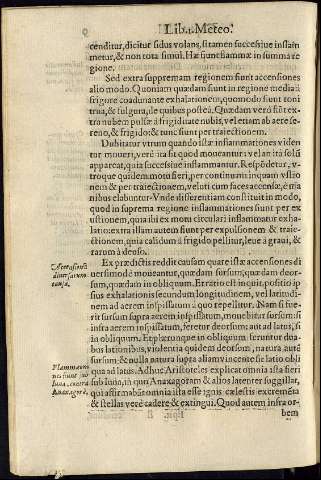 Lib. 1. Meteo.
cenditur, dicitur sidus volans, si tamen successiue inflam
metur, & non tota simul. Hæ sunt flammæ in summa re
gione.
Sed extra suppremam regionem sunt accensiones
alio modo. Quoniam quædam sunt in regione media à
frigore coadunante exhalationem, quomodo sunt toni
trua, & fulgura, de quibus postea. Quædam verò fiūt ex-
tra nubem pulsæ à frigiditate nubis, vel etiam ab aere se-
reno, & frigido: & tunc sunt per traiectionem.
Dubitatur vtrum quando istæ inflammationes viden
tur moueri, verè ita sit quod moueantur: vel an ita solū
appareat, quia successiue inflammantur. Respōdetur, v-
troque quidem motu fieri, per continuam inquam vstio
nem & per traiectionem, veluti cum faces accensæ, è ma
nibus elabuntur. Vnde differentiam constituit in modo,
quod in suprema regione inflammationes sunt per ex
ustionem, quia ibi ex motu circulari inflammatur exha-
latio: extra illam autem sunt per expulsionem & traie-
ctionem, quia calidum à frigido pellitur, leue à graui, &
rarum à denso.
Ex prædictis reddit causam quare istæ accensiones di
uersimodè moueantur, quædam sursum; quædam deor-
sum, quædam in obliquum. Et ratio est in quit, positio ip
sius exhalationis secundum longitudinem, vel latitudi-
nem ad aerem inspissatum à quo repellitur. Nam si fue-
rit sursum supra aerem inspissatum, mouebitur sursum: si
infra aerem inspissatum, feretur deorsum: aut ad latus, si
in obliquum. Et plærunque in obliquum feruntur dua-
bus lationibus, violentia quidem deorsum, natura autē
sursum, & nulla natura supra aliam vincente sit latio obli
qua ad latus. Adhuc Aristoteles explicat omnia ista fieri
sub luna, in quo Anaxagoram & alios latenter suggillat,
qui affirmabāt omnia ista esse ignis cælestis excremēta
& stellas verè cadere & extingui. Quod autem infra or-
bem
Accensionū
diuersa mo-
tus
Flammæ om
nes fiunt sub
luna, contra
Anaxagorā.